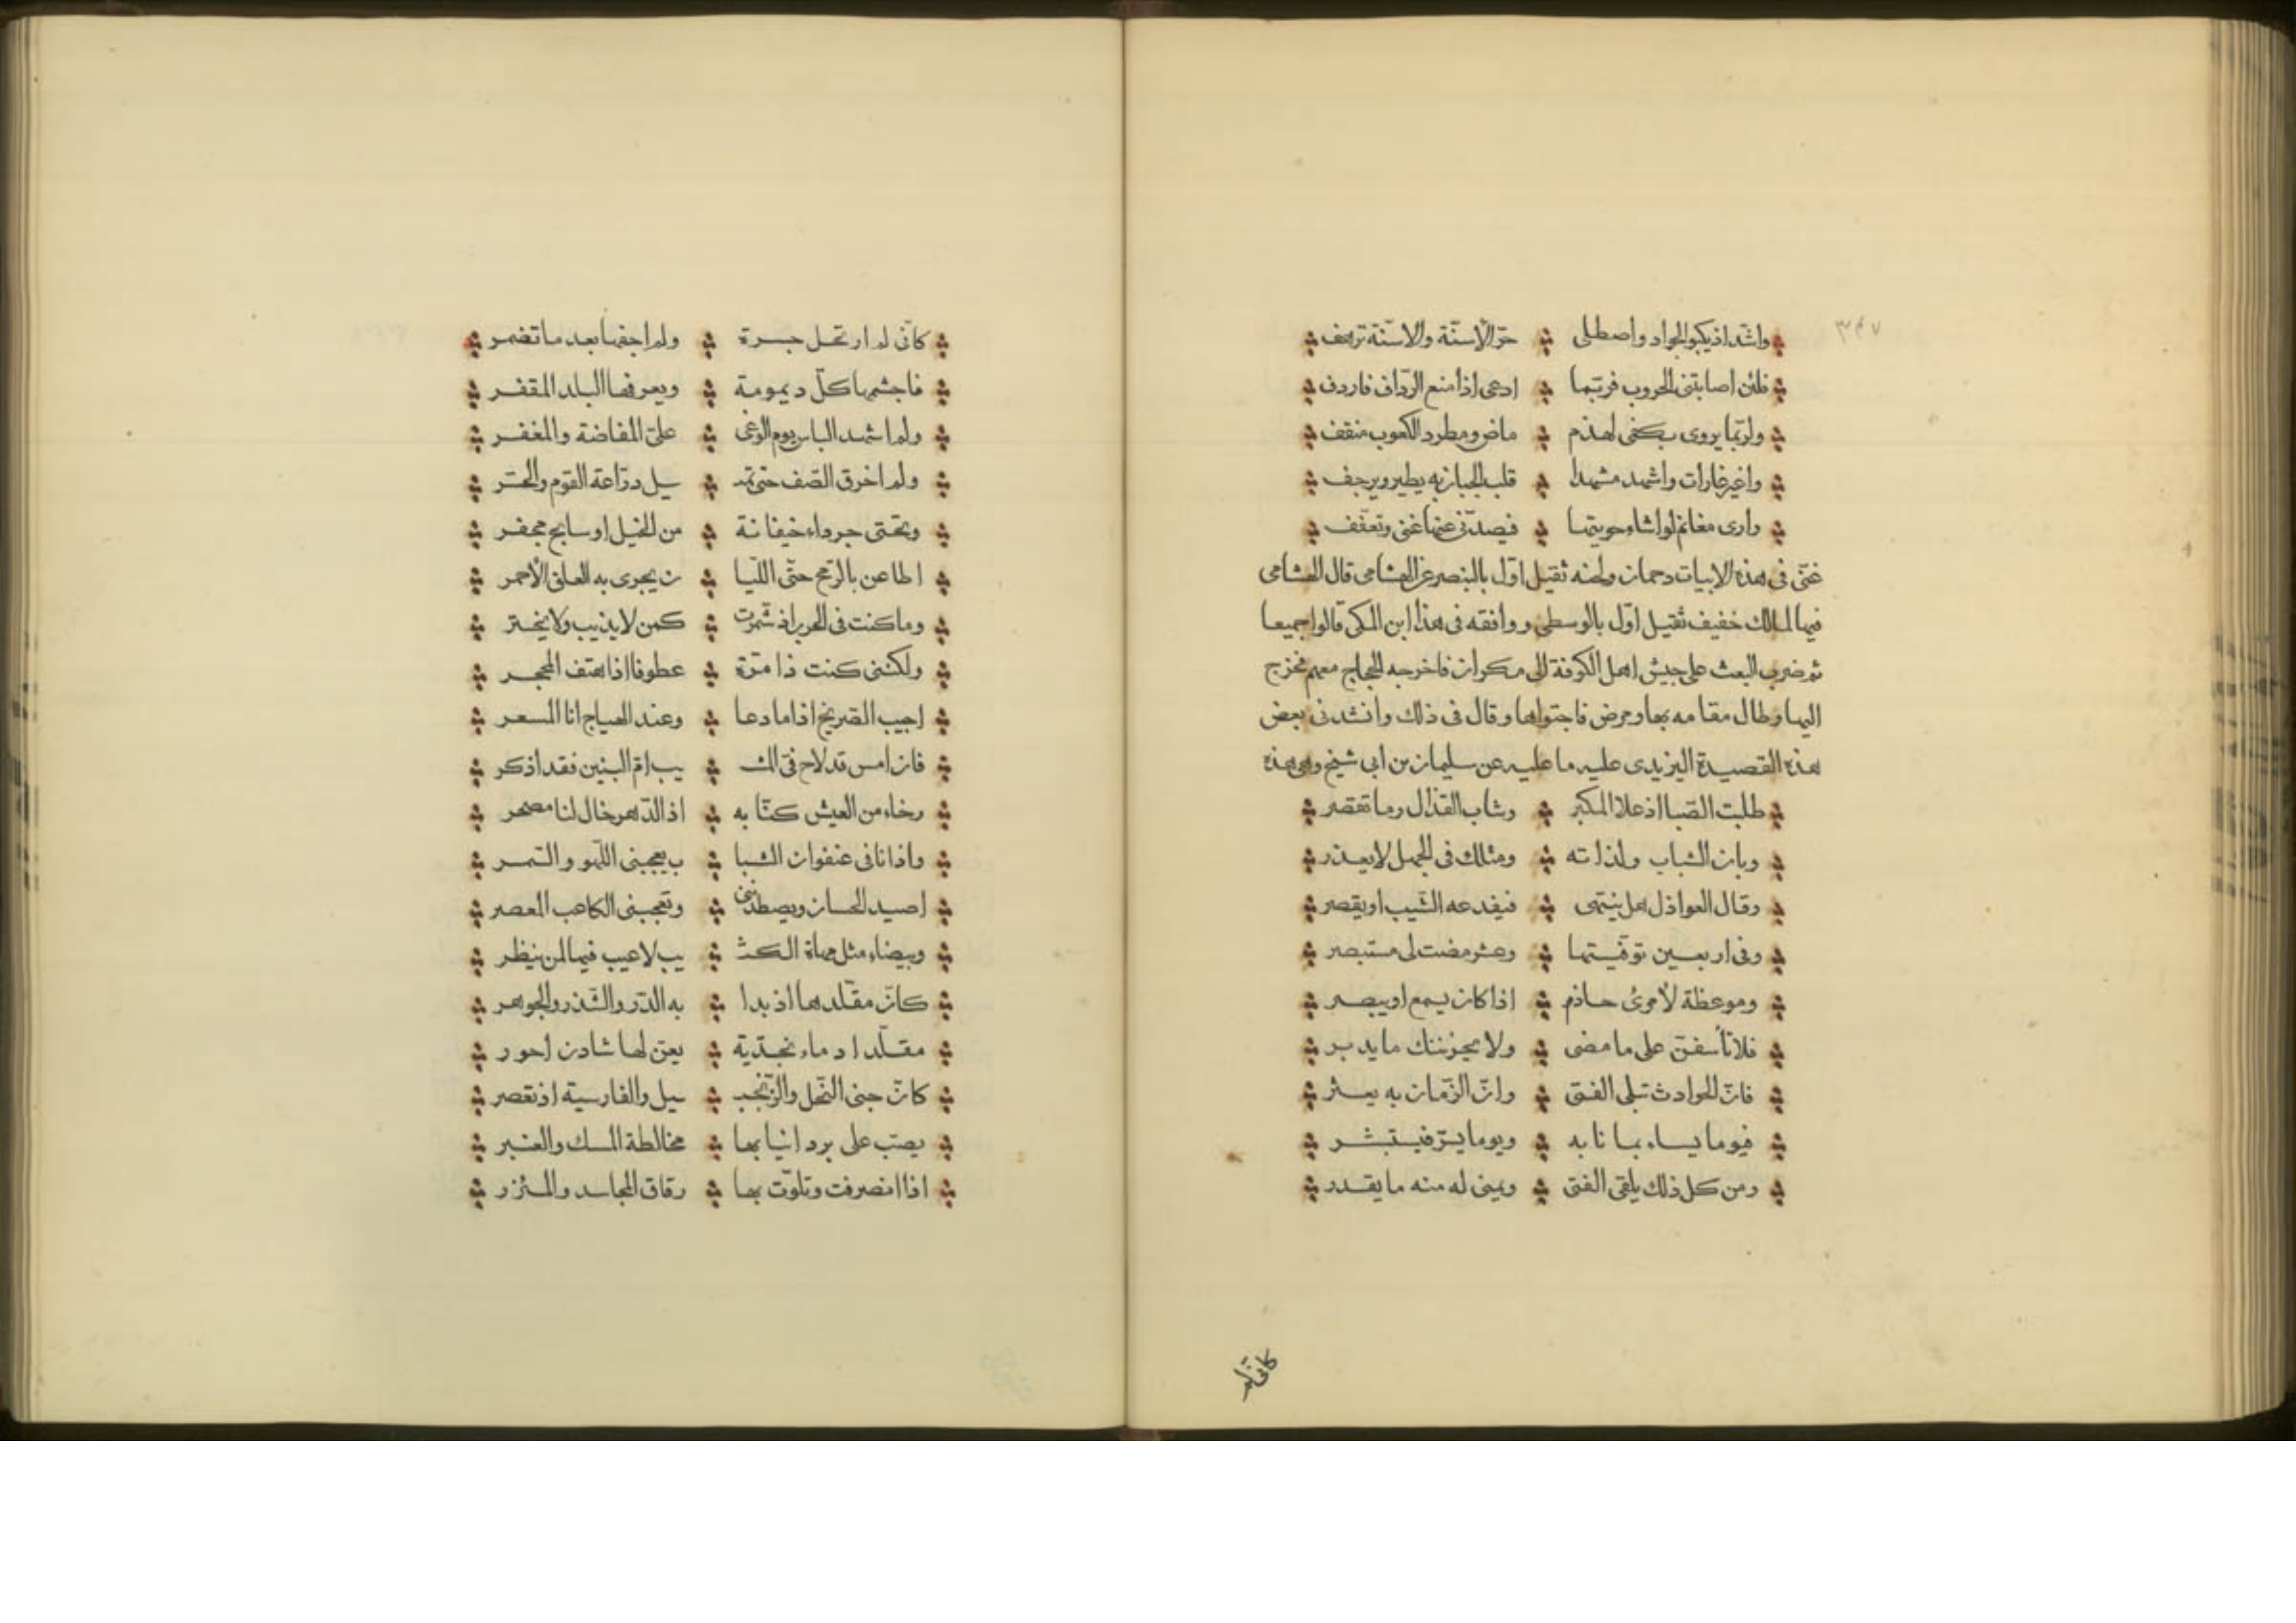 ٣٤٧
واشد اذ يكبو الجواد واصطلى حرّ الأسنّة والاسنّة ترعف
فلئن اصابتنى الحروب فربّما ادعى اذا منع الرّداف فاردف
ولربّما يروى بكفى لهذم ماض ومطرد الكعوب مثقف
واغير غارات واشهد مشهدا قلب الجبان به يطير ويرجف
وارى مغانم لو اشاء حويتها فيصدّنى عنها غنى وتعفّف
غنّى فى هذه الابيات دحمان ولحنه ثقيل اوّل بالبنصر عن الهشامى قال الهشامى
فيها لمالك خفيف ثقيل اوّل بالوسطى ووافقه فى هذا ابن المكى قالوا جميعا
ثم ضرب البعث على جيش اهل الكوفة الى مكران فاخرجه الحجاج معهم فخرج
اليها وطال مقامه بها ومرض فاجتواها وقال فى ذلك وانشدنى بعض
هذه القصيدة اليزيدى عليه ما عليه عن سليمان بن ابى شيخ وهى هذه
طلبت الصّبا اذ علا المكبر وشاب القذال وما تقصر
وبان الشباب ولذاته ومثلك فى الجهل لا يعذر
وقال العواذل هل ينتهى فيقدعه الشّيب او يقصر
وفى اربعين توفّيتها وعشر مضت لى مستبصر
وموعظة لأمرئ حازم اذا كان يسمع او يبصر
فلا تأسفنّ على ما مضى ولا يحزننك ما يدبر
فانّ الحوادث تبلى الفتى وانّ الزّمان به يعثر
فيوما يساء بما نابه ويوما يسرّ فيستبشر
ومن كل ذلك يلقى الفتى ويمنى له منه ما يقدر
كانى لم
كانّى لم ارتحل جسرة ولم اجفها بعد ما تضمر
فاجشمها كلّ ديمومة ويعرفها البلد المقفر
ولم اشهد الباس يوم الوغى علىّ المفاضة والمغفر
ولم اخرق الصّف حتى تميـ ـل دراعة القوم والحسّر
وتحتى جرداء خيفانة من الخيل او سابح مجفر
اطاعن بالرّمح حتّى اللّبا ن يجرى به العانى الأحمر
وما كنت فى الحرب اذ شمّرت كمن لا يذيب ولا يخثر
ولكننى كنت ذا مرّة عطوفا اذا هتف المحجر
اجيب الصّريخ اذا ما دعا وعند الهياج انا المسعر
فان امس قد لاح فىّ المشـ يب امّ البنين فقد اذكر
رخاء من العيش كنّا به اذ الدّهر خال لنا مصحر
واذ انا فى عنفوان الشبا ب يعجبنى اللّهو والسّمر
اصيد الحسان ويصطدننى وتعجبنى الكاعب المعصر
وبيضاء مثل مهاة الكثـ يب لا عيب فيها لمن ينظر
كانّ مقلّدها اذ بدا به الدّر والشّذر والجوهر
مقلّد ادماء نجديّة يعنّ لها شادن احور
كانّ جنى النّحل والزّنجبـ يل والفارسية اذ تعصر
يصبّ على برد انيابها مخالطه المسك والعنبر
اذا انصرفت وتلوّت بها رقاق المجاسد والمئزر